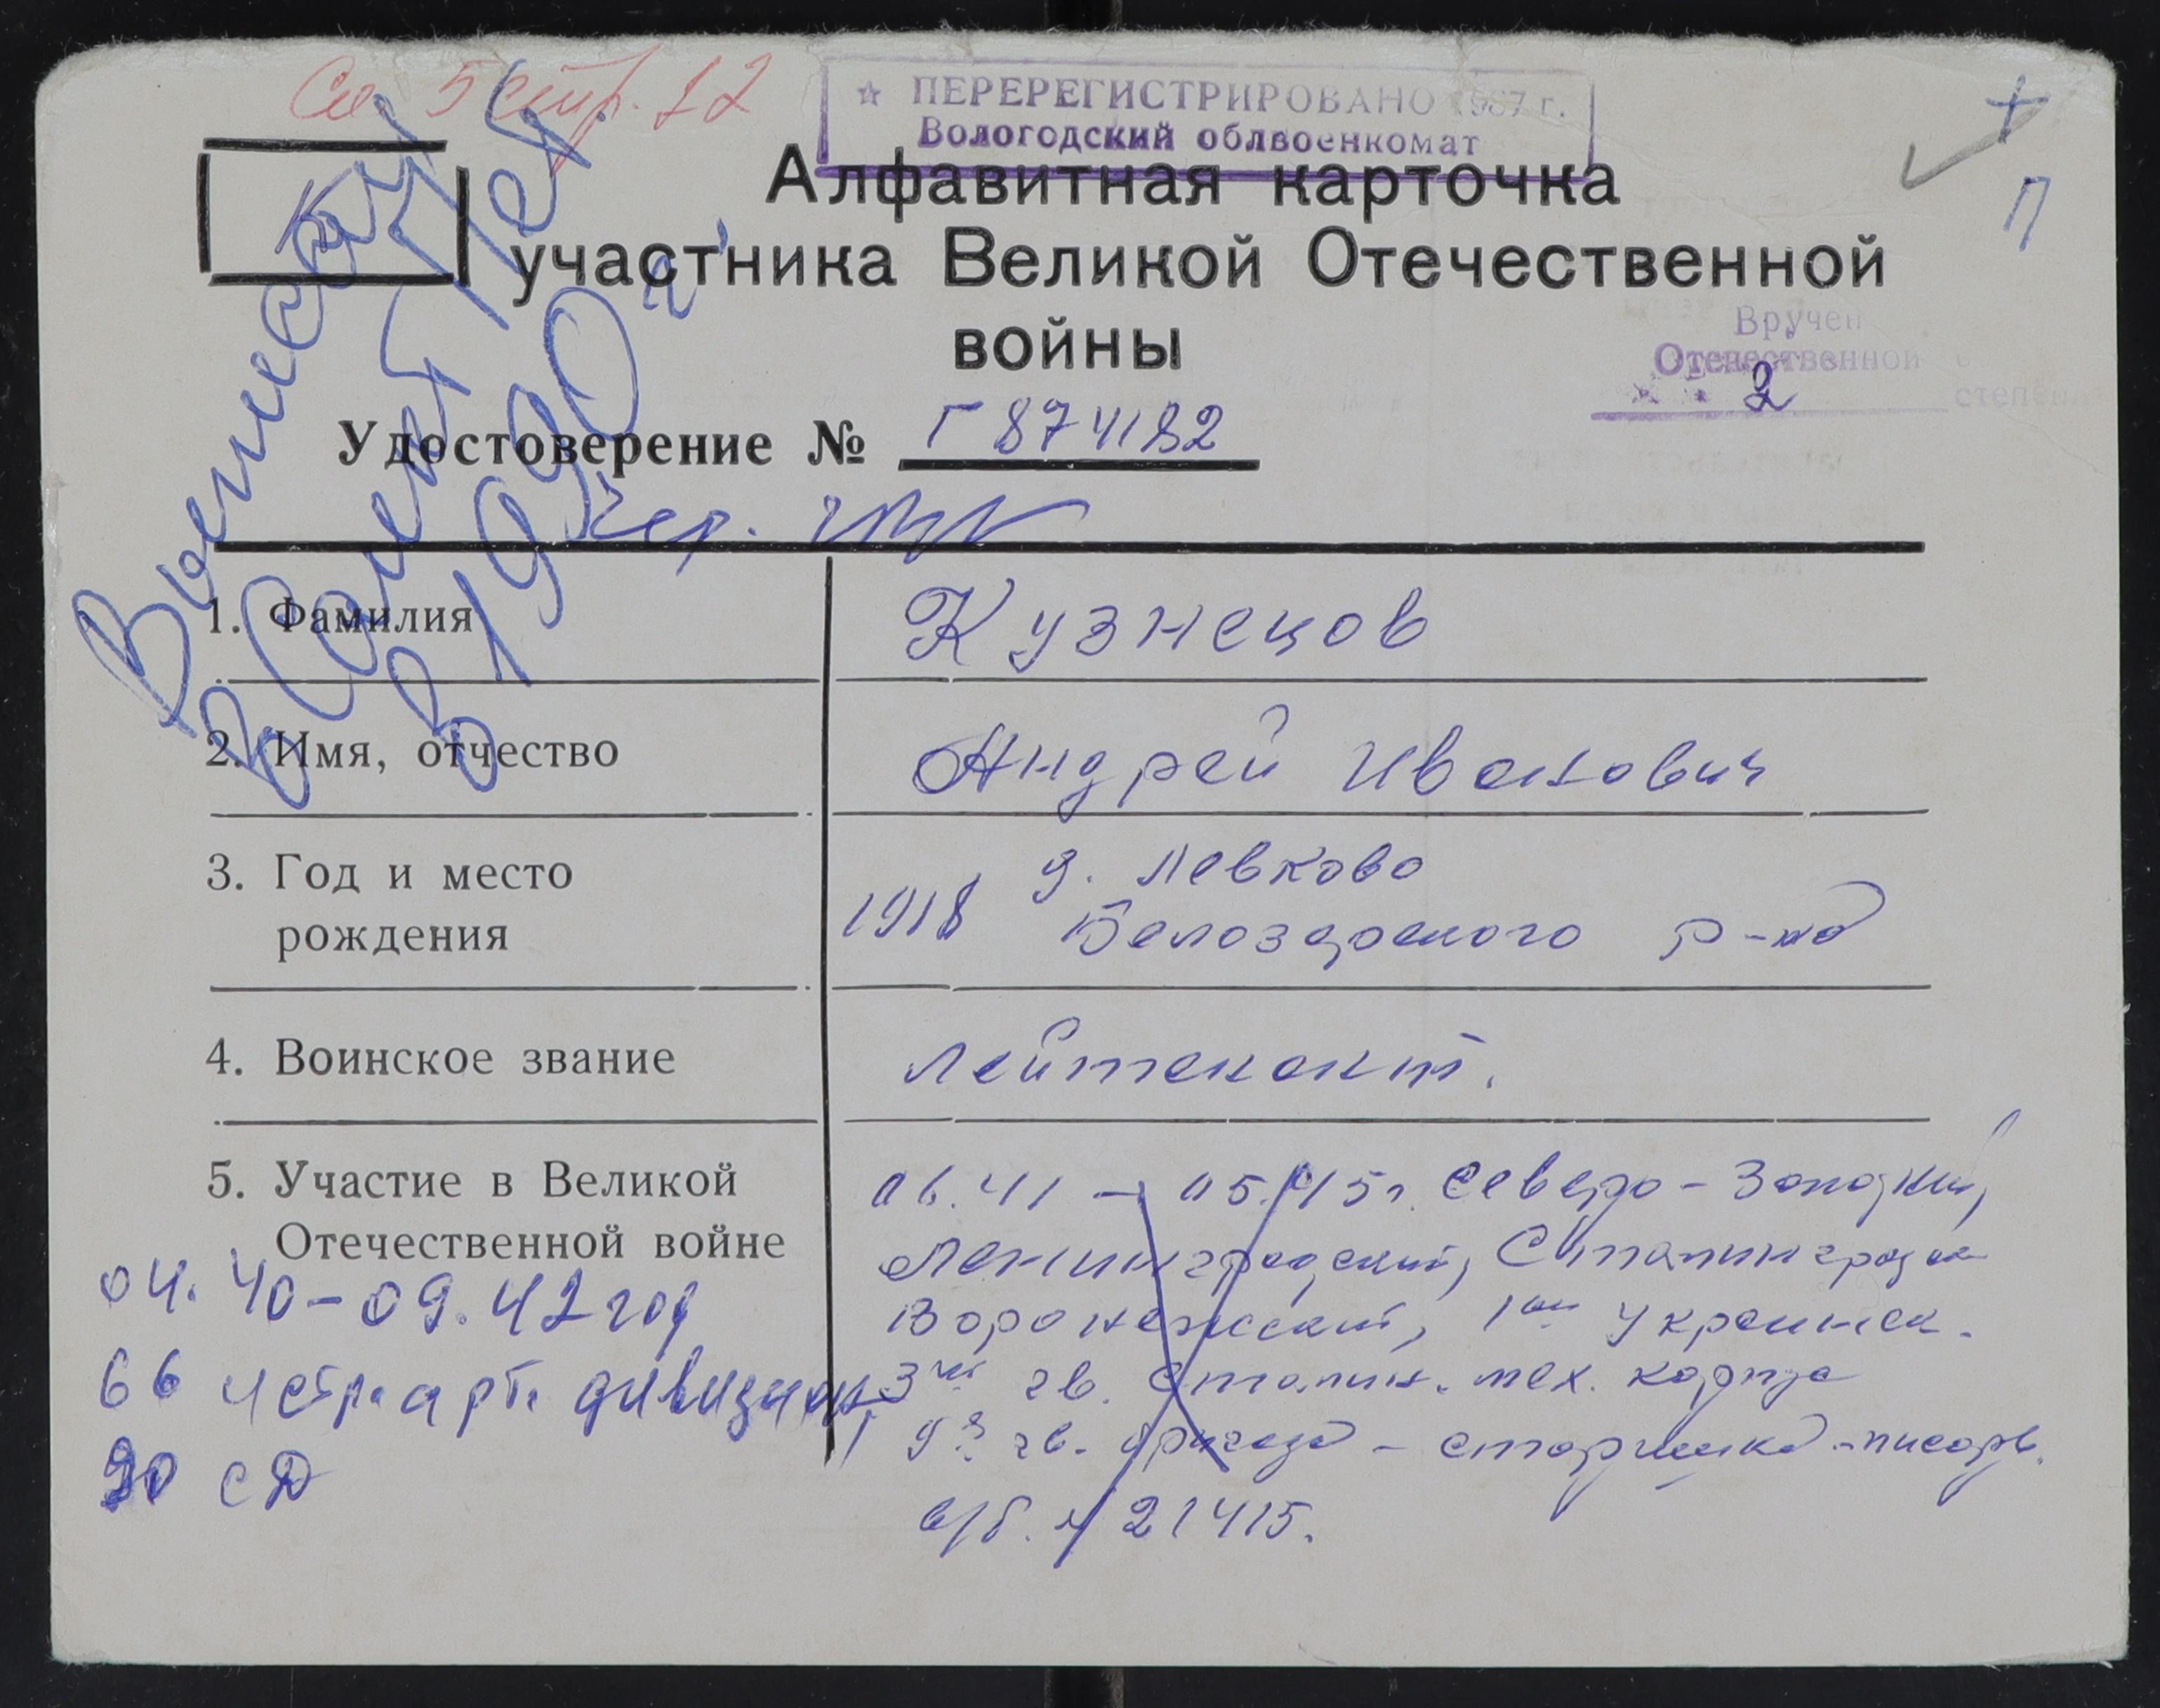 Св 5 стр. 12
☆ ПЕРЕРЕГИСТРИРОВАНО 1987 г.
Вологодский облвоенкомат
+
П
К
Алфавитная карточка
участника Великой Отечественной
войны
Вручен
Отечественной
степени
2
Удостоверение № Г 874182
чер. ГВК
в 1990 г.
1. Фамилия
Кузнецов
2. Имя, отчество
Андрей Иванович
3. Год и место
рождения
1918 д. Левково
Белозерского р-на
4. Воинское звание
лейтенант.
5. Участие в Великой
Отечественной войне
04. 40-09.42 год
66 истр. арт. дивизион
90 СД
06.41 - 05.45г. Северо-Западный,
Ленинградский, Сталинградск
Воронежский, 1ый Украинск.
3ий гв. Сталин. мех. корпуса
9я гв. бригада - старшина-писарь.
в/б. н 21415.